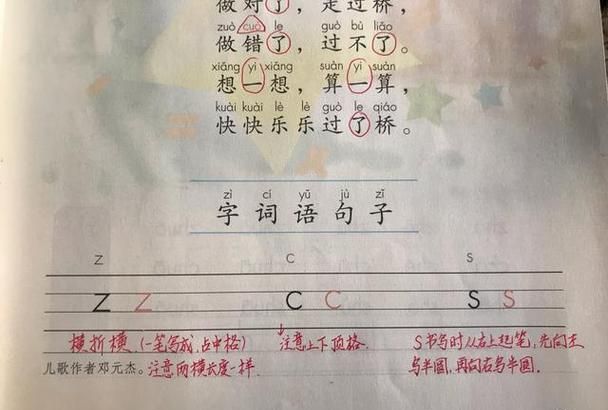 做对了，走过桥，
zuò cuò le guò bù liǎo
做错了，过不了。
xiǎng yi xiǎng suàn yi suàn
想一想，算一算，
kuài kuài lè lè guò le qiáo
快快乐乐过了桥。
zì cí yǔ jù zǐ
字词语句子
z c s
Z Z C C S S
横折横（一笔写成，占中格） 注意上下顶格. S书写时从右上起笔，先向左
儿歌作者邓元杰。注意两横长度一样. 写半圆，再向右写半圆.